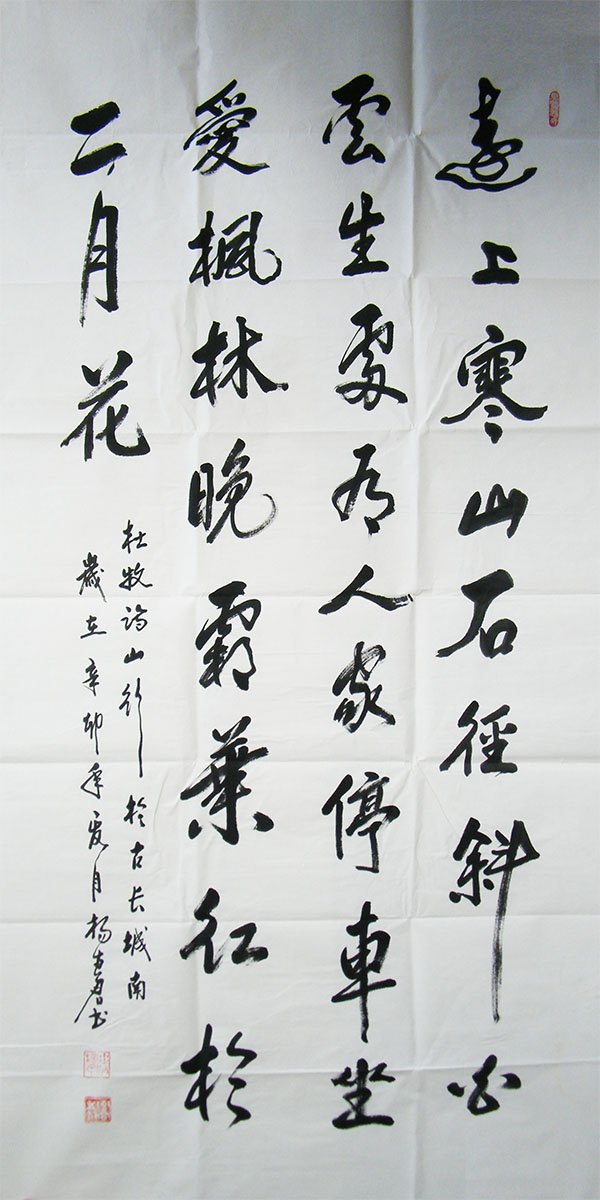 遠上寒山石徑斜白
雲生處有人家停車坐
愛楓林晚霜葉紅於
二月花
杜牧詩山行於古长城南
歲在辛卯年夏月楊志勇书